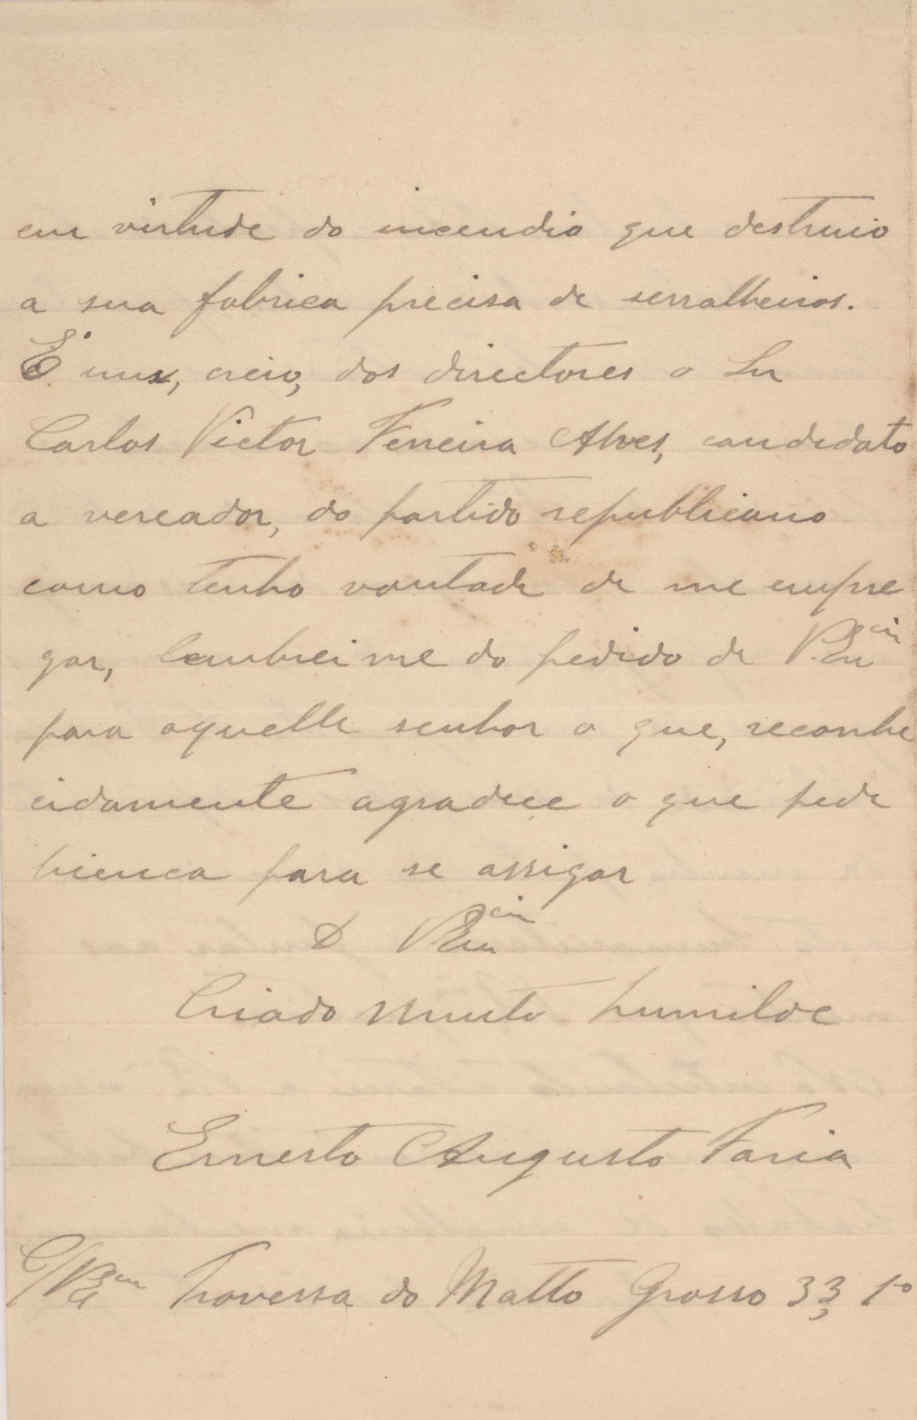 em virtude do incendio que destruio
a sua fabrica precisa de serralheiros.
É um, creio, dos directores o Sr
Carlos Victor Ferreira Alves, candidato
a vereador, do partido republicano
como tenho vontade de me empre
gar, lembrei me do pedido de V. Excia
para aquelle senhor o que, reconhe
cidamente agradece o que pede
licença para se assigar
D V Excia
Criado muito humilde
Ernesto Augusto Faria
Travessa do Matto Grosso 33, 1º